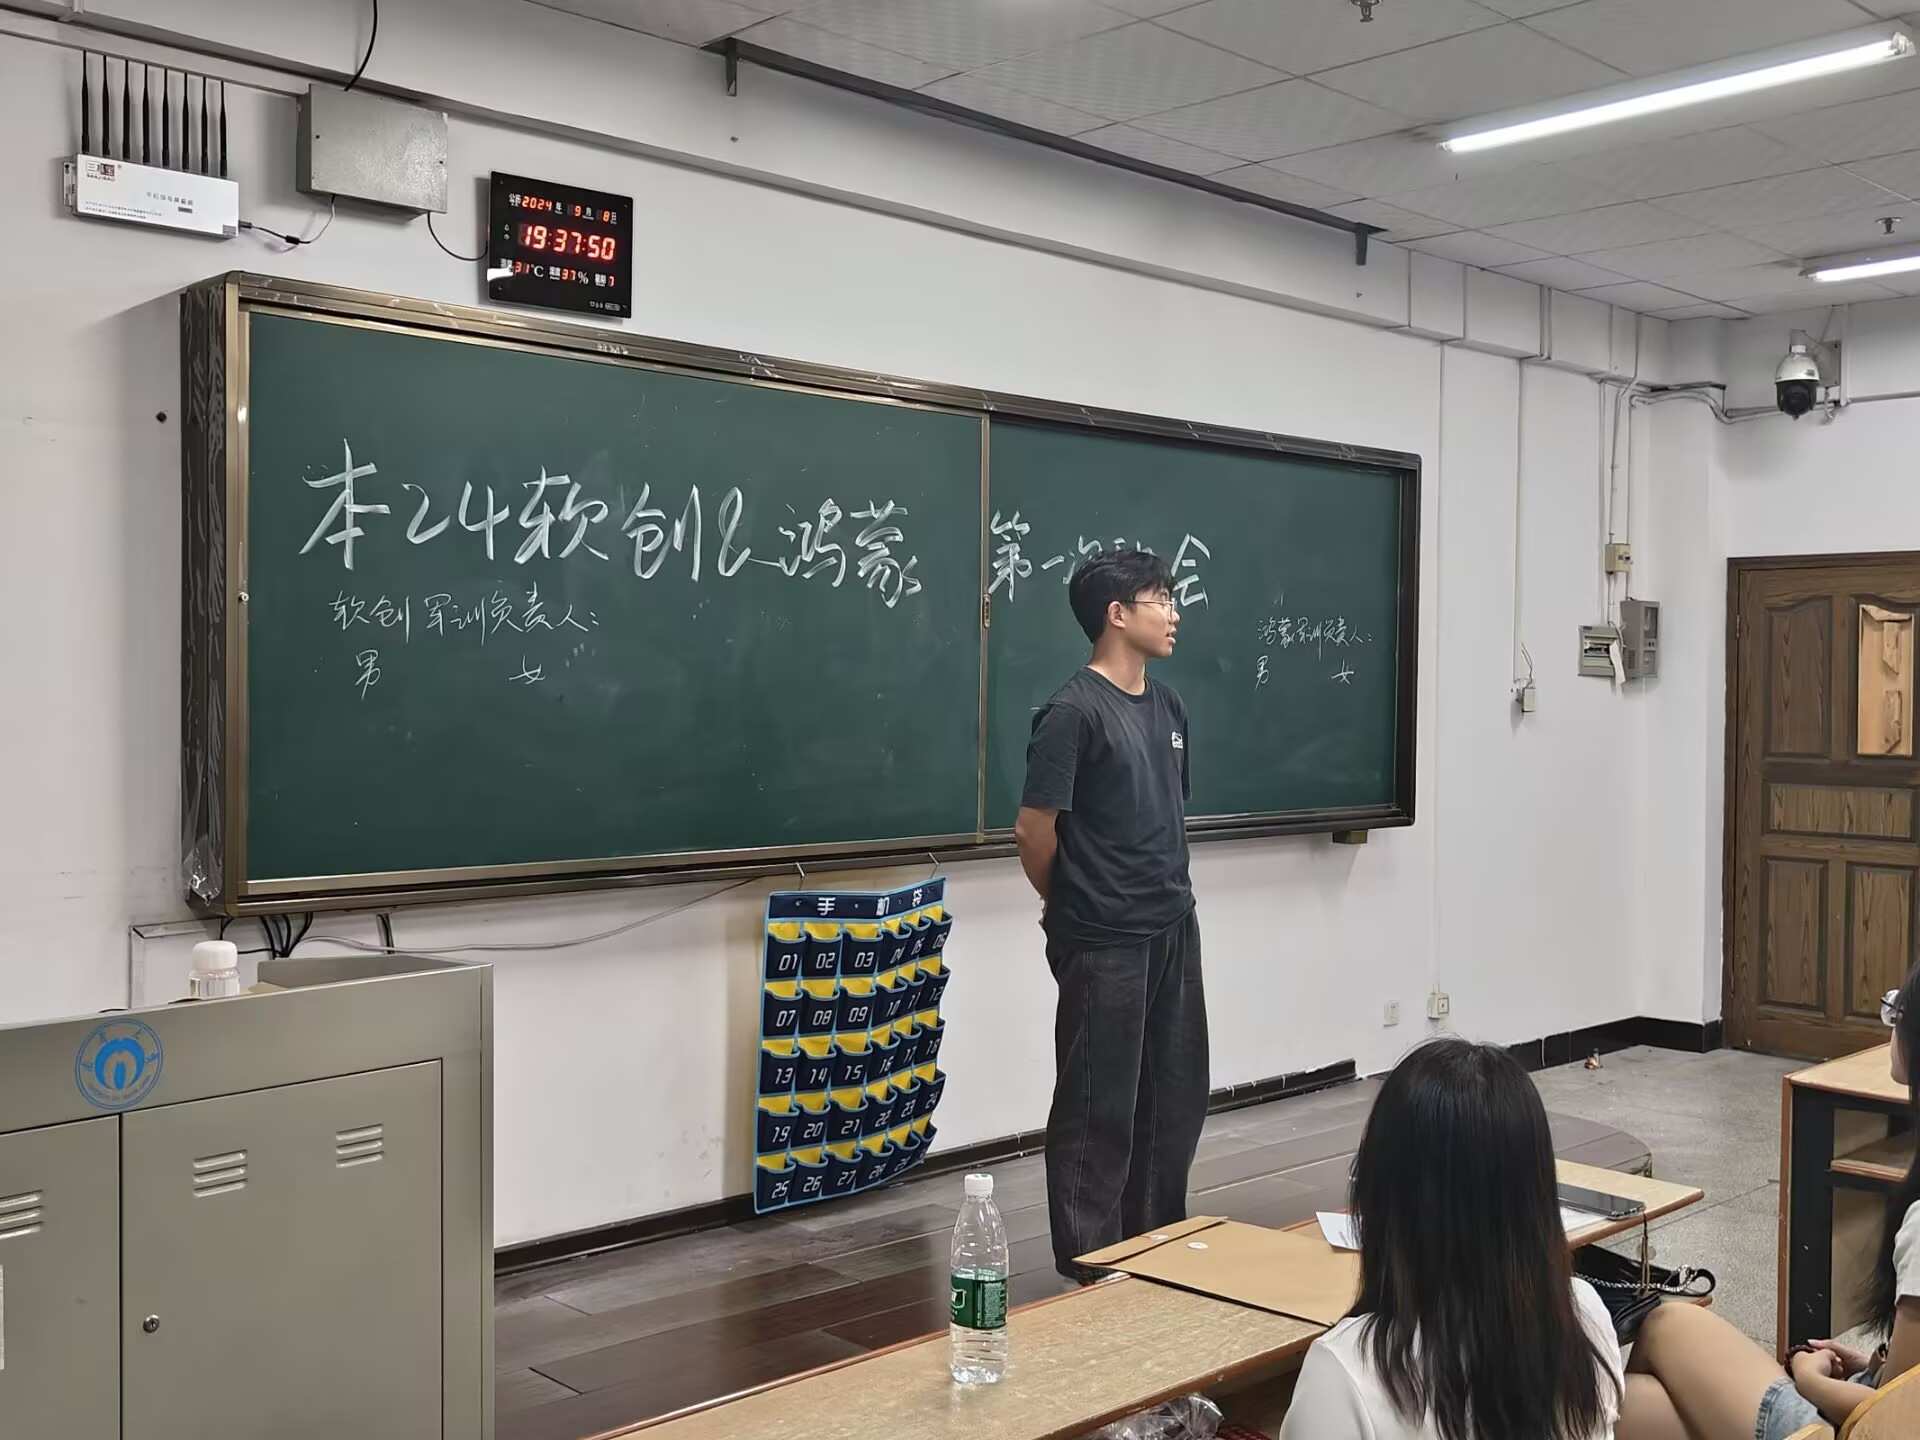 公历2024年9月8日
19:37:50
温度31℃ 湿度37% 星期7
本24软创&鸿蒙 第一次 会
软创军训负责人:
男 女
鸿蒙军训负责人:
男 女
手机袋
01 02 03 04 05 06
07 08 09 10 11 12
13 14 15 16 17 18
19 20 21 22 23 24
25 26 27 28 29